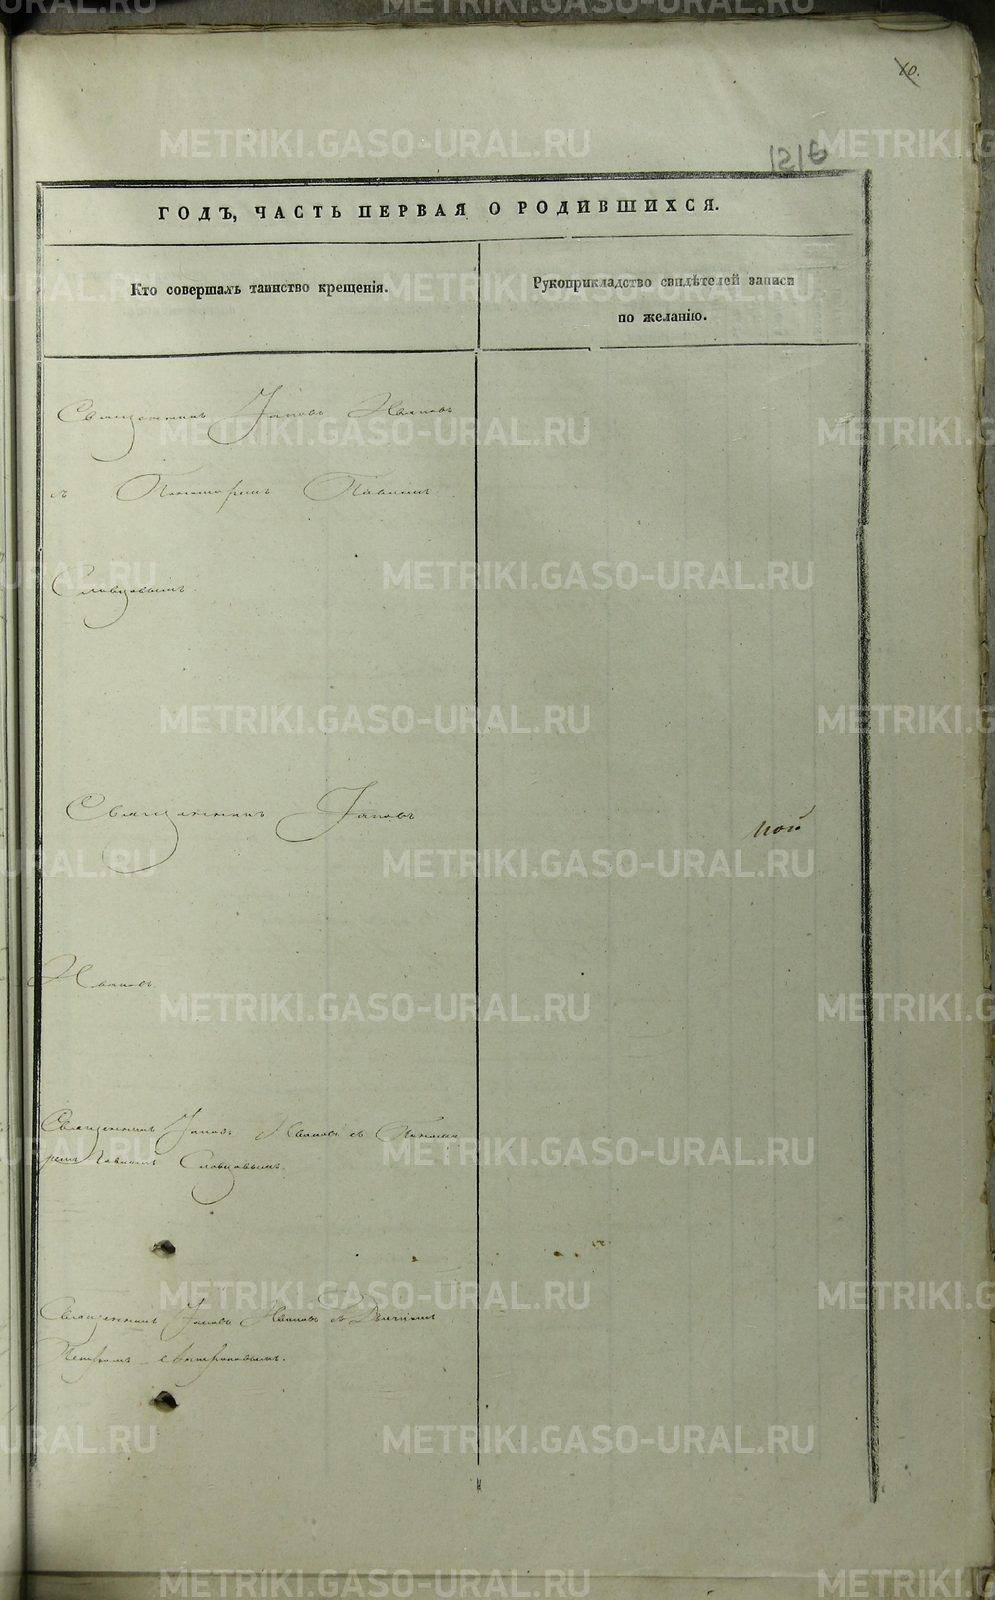 10.
1216
ГОДЪ, ЧАСТЬ ПЕРВАЯ О РОДИВШИХСЯ.
Кто совершалъ таинство крещенія.
Рукоприкладство свидѣтелей записи
по желанію.
Священникъ Іаковъ Ивановъ
съ Пономаремъ Павломъ
Словцовымъ.
Священникъ Іаковъ
Ивановъ
Священникъ Іаковъ Ивановъ съ Понома
ремъ Павломъ Словцовымъ.
Священникъ Іаковъ Ивановъ съ Дьячкомъ
Петромъ
METRIKI.GASO-URAL.RU